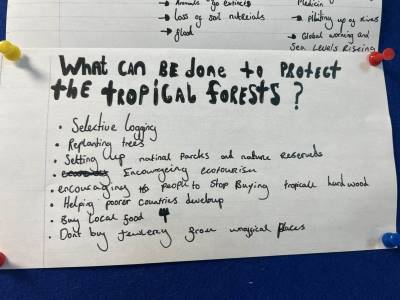 → Animals go extinct
→ Loss of soil nutrients
→ flood
Medicin
→ Polluting up of rivers
→ Global worming and
Sea Levels Rising
What can be done to protect
the tropical forests?
• Selective Logging
• Replanting trees
• Setting up national parcks and nature reserveds
• Encourgeing ecotourism
• encouraging people to stop buying tropicale hard wood
• Helping poorer countries develoup
• Buy Local food
• Dont buy jewlerey from places